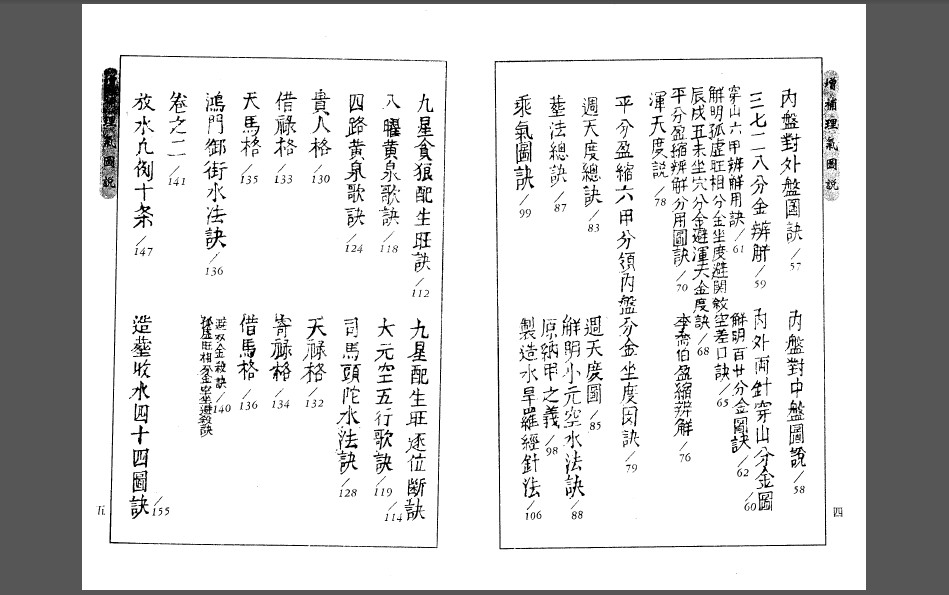 增補理氣圖說
內盤對外盤圖訣/57
內盤對中盤圖說/58
三七二八分金辨解/59
內外兩針穿山分金圖/60
穿山六甲辨解用訣/61
解明百廿分金圖訣/62
解明孤虛旺相分金坐度避関煞空差口訣/65
辰戌丑未坐穴分金避渾天金度訣/68
平分盈縮辨解分用圖訣/70
李喬伯盈縮辨解/76
渾天度說/78
平分盈縮六甲分領內盤分金坐度因訣/79
週天度總訣/83
週天度圖/85
塟法總訣/87
解明小元空水法訣/88
原納甲之義/98
乘氣圖訣/99
製造水旱羅經針法/106
四
九星貪狼配生旺訣/112
九星配生旺逐位斷訣/114
八曜黃泉歌訣/118
大元空五行歌訣/119
四路黃泉歌訣/124
司馬頭陀水法訣/128
貴人格/130
天祿格/132
借祿格/133
寄祿格/134
天馬格/135
借馬格/136
鴻門御街水法訣/136
避煞金殺訣/140
孤虛旺相分金坐避殺訣
卷之二/141
放水九例十条/147
造塟收水四十四圖訣/155
理氣圖說
五